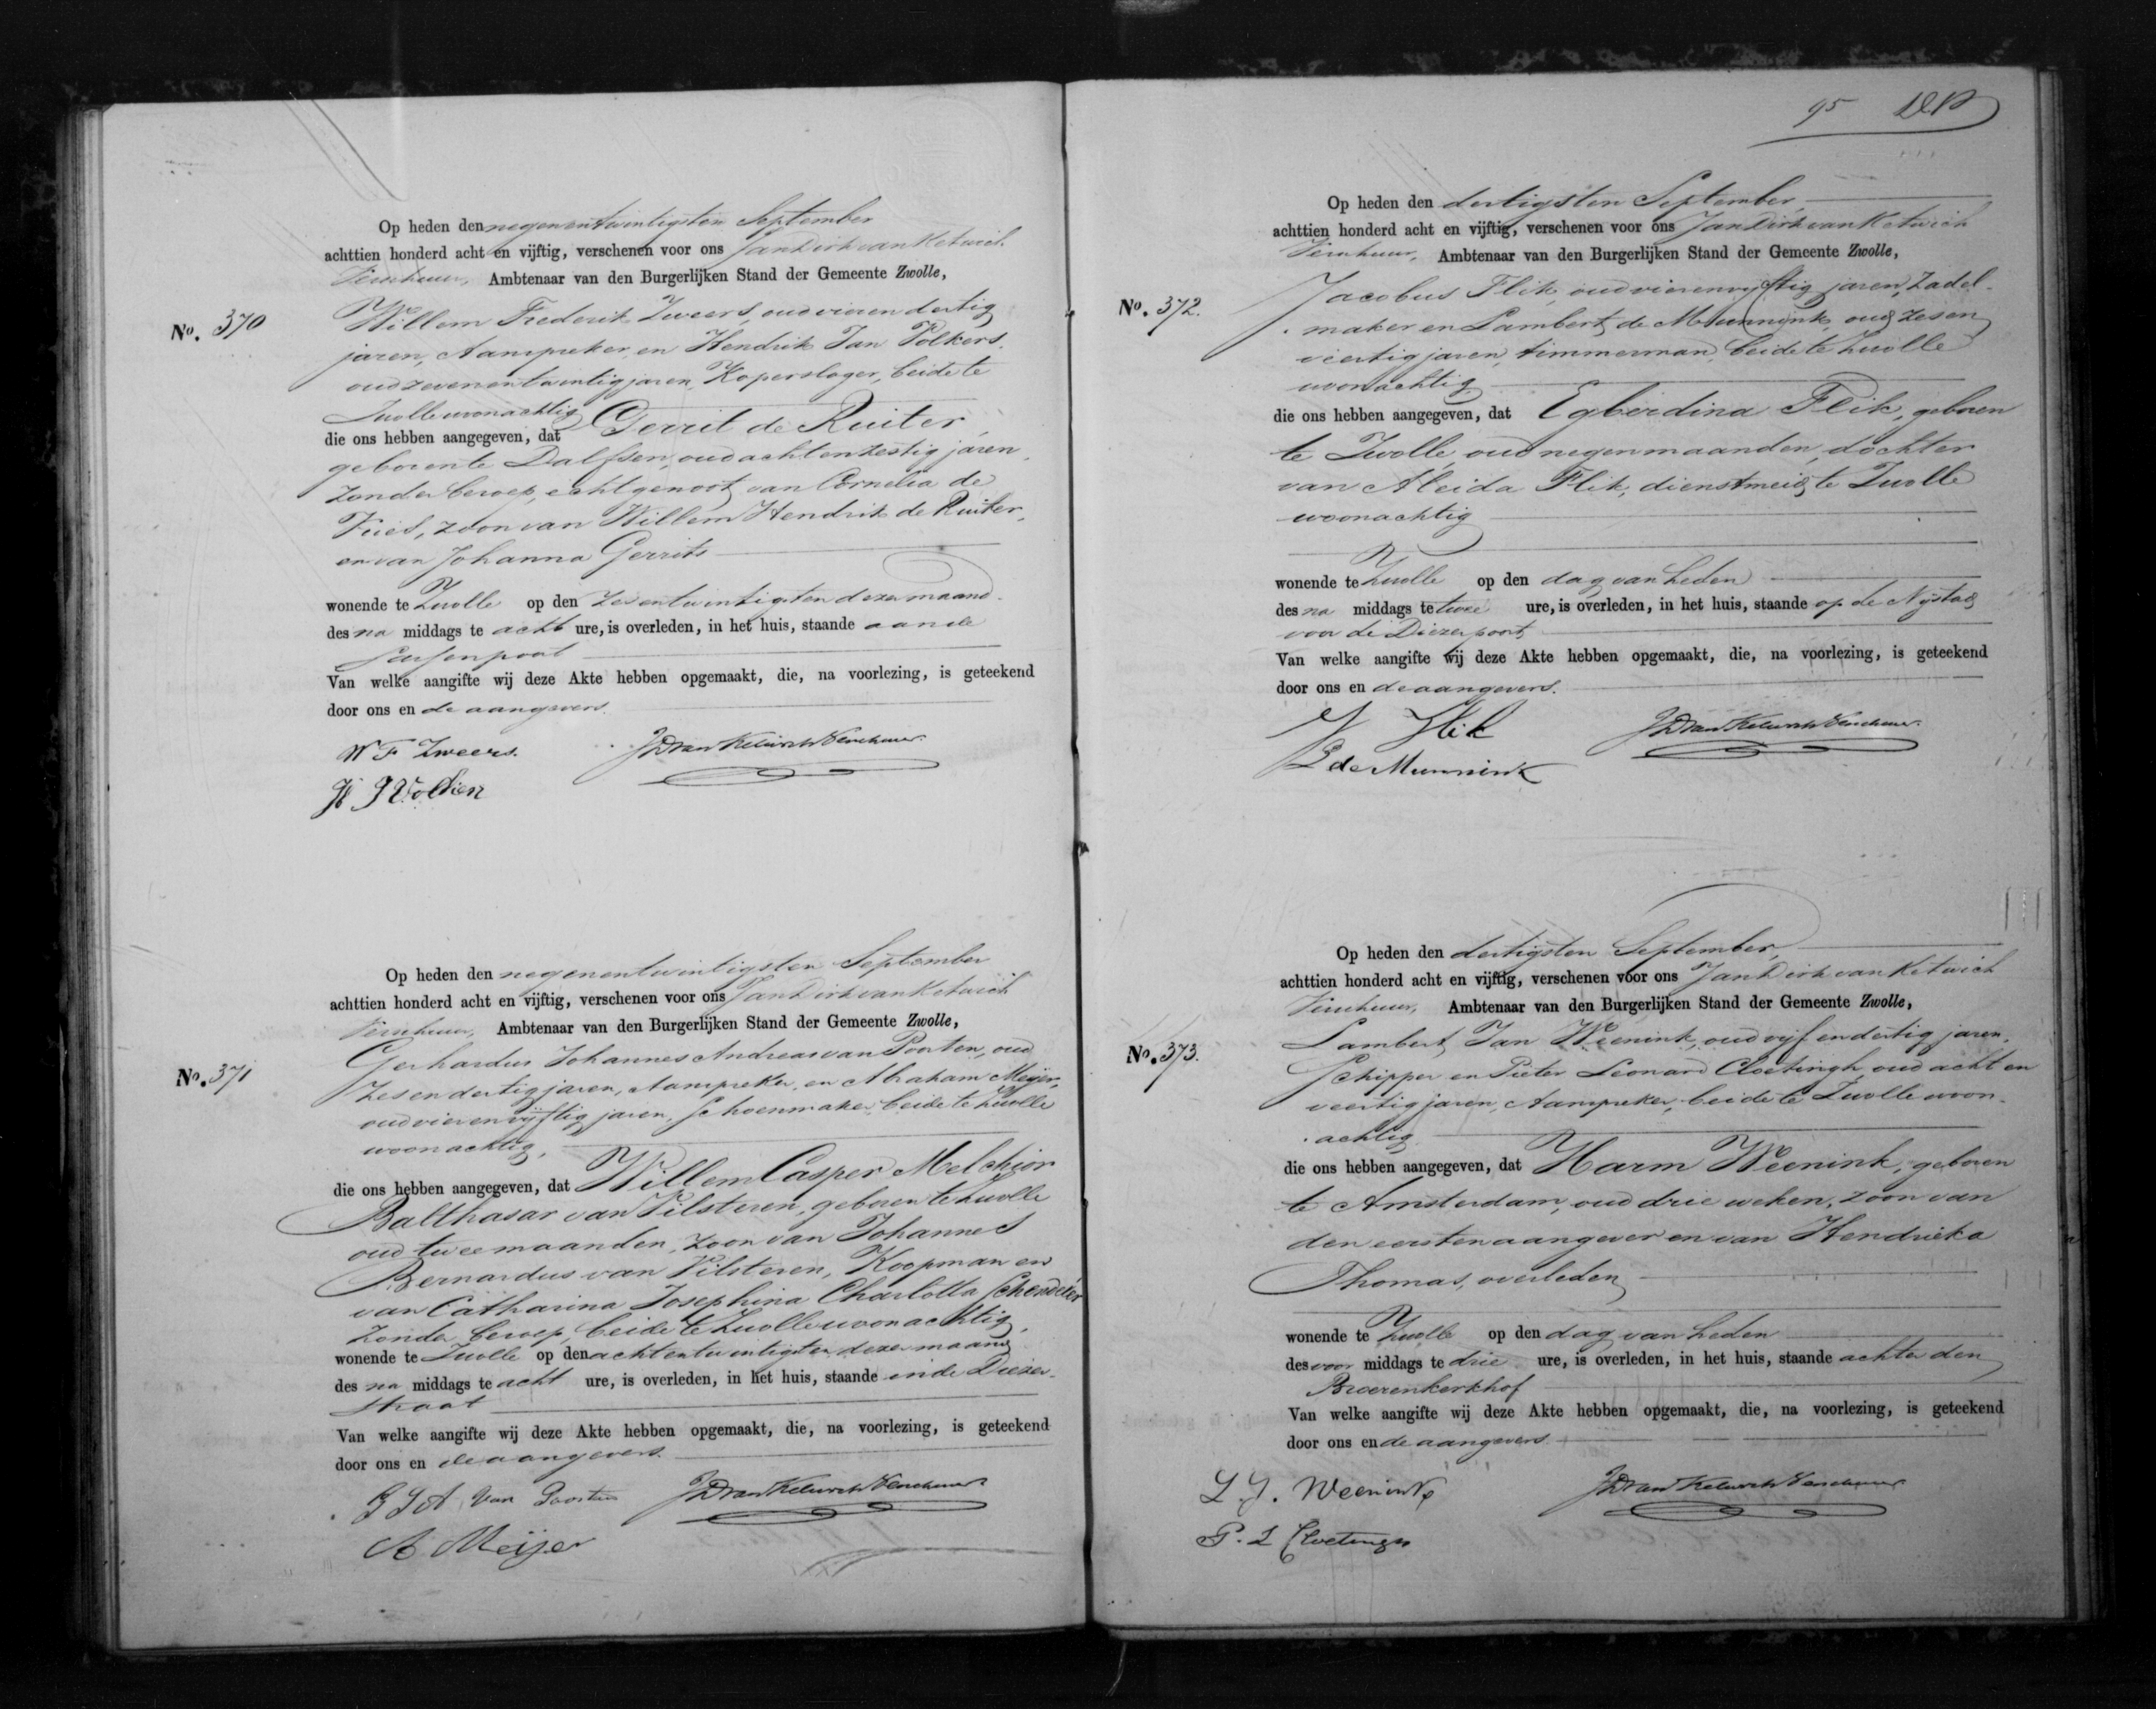 Op heden den negenentwintigsten September
achttien honderd acht en vijftig, verschenen voor ons Jan Dirk van Ketwich
Verschuur, Ambtenaar van den Burgerlijken Stand der Gemeente Zwolle,
No. 370
Willem Frederik Zweers, oud vieren dertig
jaren, Aanspreker, en Hendrik Jan Volkers,
oud zevenentwintig jaren, Koperslager, beide te
Zwolle woonachtig
die ons hebben aangegeven, dat Gerrit de Ruiter,
geboren te Dalfsen, oud achtenzestig jaren,
zonder beroep, echtgenoot van Cornelia de
Vries, zoon van Willem Hendrik de Ruiter,
en van Johanna Gerrits
wonende te Zwolle op den zesentwintigsten dezer maand
des na middags te acht ure, is overleden, in het huis, staande aan de
Sassenpoort
Van welke aangifte wij deze Akte hebben opgemaakt, die, na voorlezing, is geteekend
door ons en de aangevers.
W F Zweers. JD van Ketwich Verschuur
H J Volkers
Op heden den negenentwintigsten September
achttien honderd acht en vijftig, verschenen voor ons Jan Dirk van Ketwich
Verschuur, Ambtenaar van den Burgerlijken Stand der Gemeente Zwolle,
No. 371
Gerhardus Johannes Andreas van Poorten, oud
zesendertig jaren, Aanspreker, en Abraham Meijer,
oud vierenvijftig jaren, Schoenmaker, beide te Zwolle
woonachtig,
die ons hebben aangegeven, dat Willem Casper Melchior
Balthasar van Vilsteren, geboren te Zwolle
oud twee maanden, zoon van Johannes
Bernardus van Vilsteren, Koopman en
van Catharina Josephina Charlotta Schendeler
zonder beroep, beide te Zwolle woonachtig,
wonende te Zwolle op den achtentwintigsten dezer maand
des na middags te acht ure, is overleden, in het huis, staande in de Diezer-
straat
Van welke aangifte wij deze Akte hebben opgemaakt, die, na voorlezing, is geteekend
door ons en de aangevers.
G J A Van Poorten JD van Ketwich Verschuur
A Meijer
95
Op heden den dertigsten September,
achttien honderd acht en vijftig, verschenen voor ons Jan Dirk van Ketwich
Verschuur, Ambtenaar van den Burgerlijken Stand der Gemeente Zwolle,
No. 372.
Jacobus Flik, oud vierenvijftig jaren, zadel-
maker en Lambert de Munnink, oud zesen
veertig jaren, timmerman, beide te Zwolle
woonachtig
die ons hebben aangegeven, dat Egberdina Flik, geboren
te Zwolle, oud negen maanden, dochter
van Aleida Flik, dienstmeid, te Zwolle
woonachtig
wonende te Zwolle op den dag van heden
des na middags te twee ure, is overleden, in het huis, staande op de Nystad
voor de Diezerpoort
Van welke aangifte wij deze Akte hebben opgemaakt, die, na voorlezing, is geteekend
door ons en de aangevers.
J Flik JD van Ketwich Verschuur
L de Munnink
Op heden den dertigsten September,
achttien honderd acht en vijftig, verschenen voor ons Jan Dirk van Ketwich
Verschuur, Ambtenaar van den Burgerlijken Stand der Gemeente Zwolle,
No. 373.
Lambert Jan Weenink, oud vijf en dertig jaren,
Schipper en Pieter Leonard Cloetingh, oud acht en
veertig jaren, Aanspreker, beide te Zwolle woon-
achtig
die ons hebben aangegeven, dat Harm Weenink, geboren
te Amsterdam, oud drie weken, zoon van
den eersten aangever en van Hendrieka
Thomas, overleden
wonende te Zwolle op den dag van heden
des voor middags te drie ure, is overleden, in het huis, staande achter den
Broerenkerkhof
Van welke aangifte wij deze Akte hebben opgemaakt, die, na voorlezing, is geteekend
door ons en de aangevers.
L. J. Weenink JD van Ketwich Verschuur
P. L Cloetingh